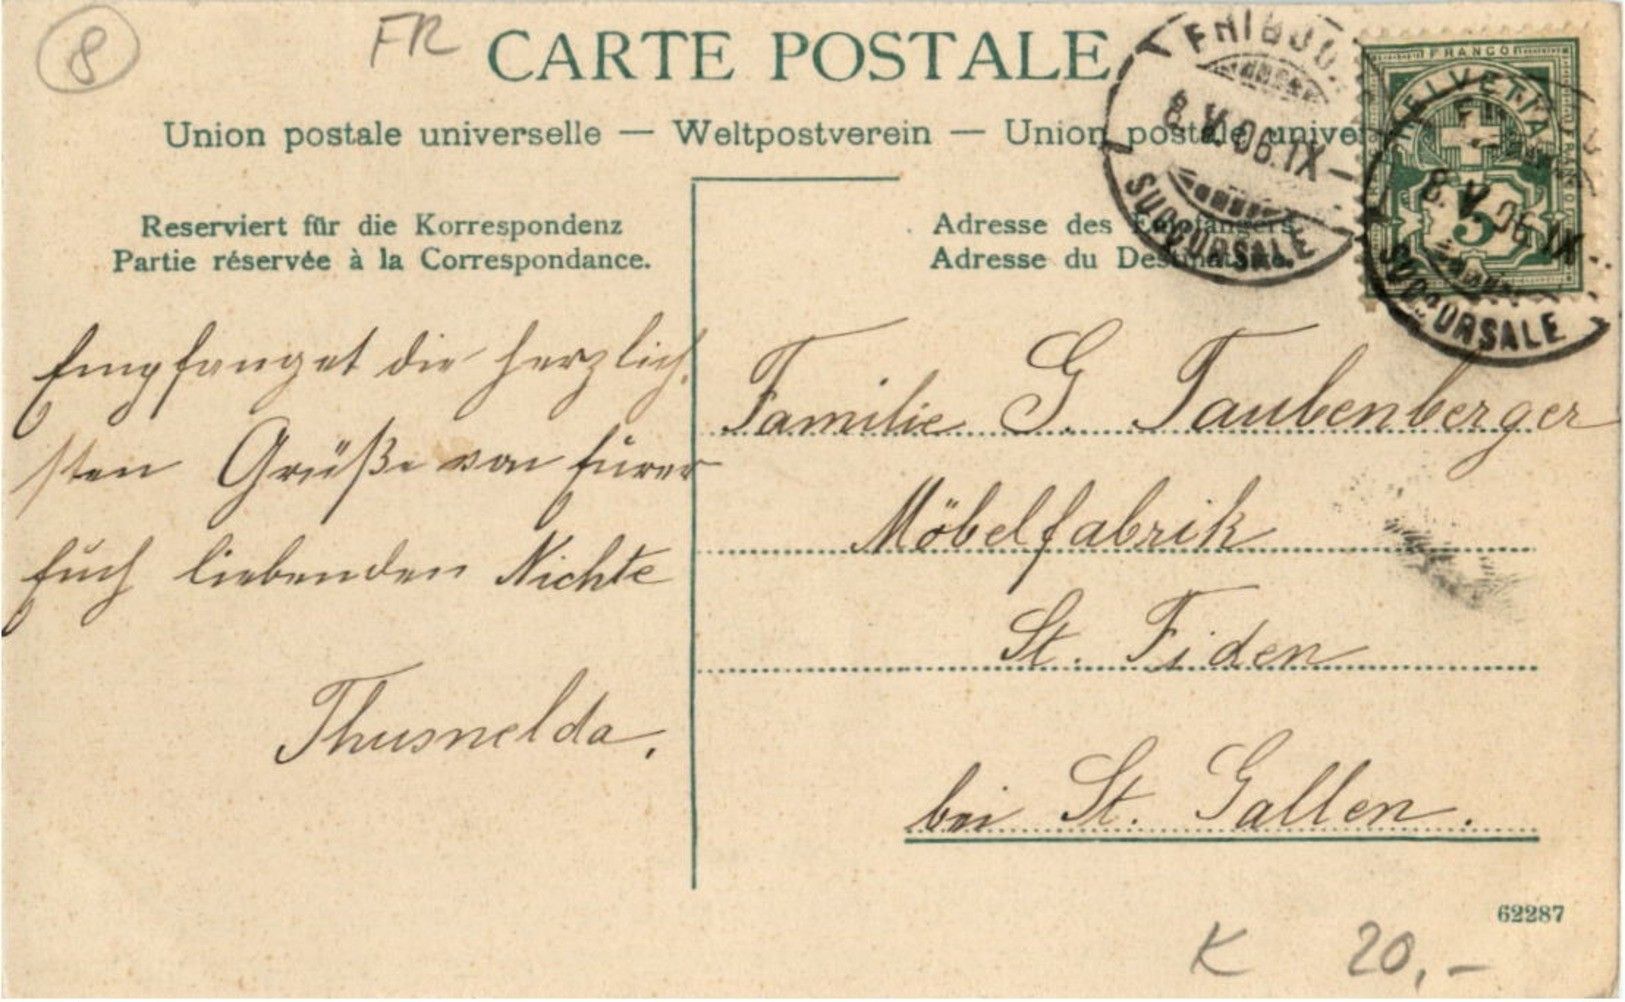 8
FR
CARTE POSTALE
Union postale universelle — Weltpostverein — Union postale univer
FRIBOU
8.V.06.IX
SUCCURSALE
FRANCO
HELVETIA
5
8.V.06.IX
SUCCURSALE
Reserviert für die Korrespondenz
Partie réservée à la Correspondance.
Adresse des Empfängers.
Adresse du Destinataire.
Empfanget die herzlich-
sten Grüße von Eurer
Euch liebenden Nichte
Thusnelda.
Familie G. Taubenberger
Möbelfabrik
St. Fiden
bei St. Gallen.
62287
K 20,-